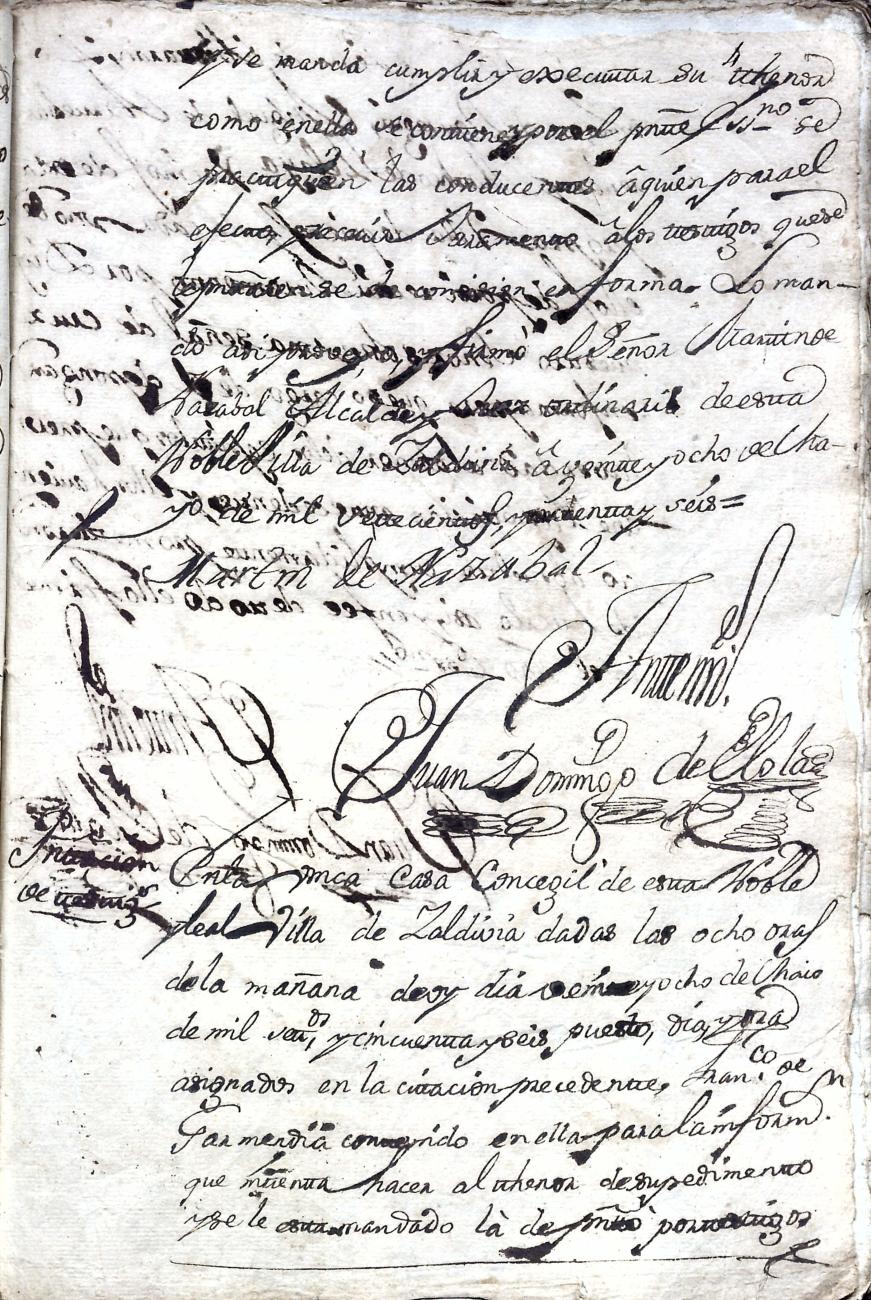 y se manda cumplir y executar su thenor
como en ella se contiene y por el pnte ssno se
practiquen las conducentes â quien para el
efecto, recivir Juramento â los testigos que se
se le comision en forma. Lo man-
do asi proveyo, y firmò el Señor Martin de
Nazabal Alcalde y Juez ordinario de esta
Noble Villa de Zaldivia â veinte y ocho de Ma-
yo de mil setecientos, y cinquenta y seis =
Martin de Nazabal
Ante mi
Juan Domingo de Elola
de testigos
En la unica Casa Concegil de esta Noble
y leal Villa de Zaldivia dadas las ocho oras
de la mañana de oy dia veinte y ocho de Maio
de mil setos, y cincuenta y seis puesto, dia, y ora
asignados en la citacion precedente, Franco de
Garmendia contenido en ella para la informn
que intenta hacer al thenor de su pedimento
y se le esta mandado la de por testigos